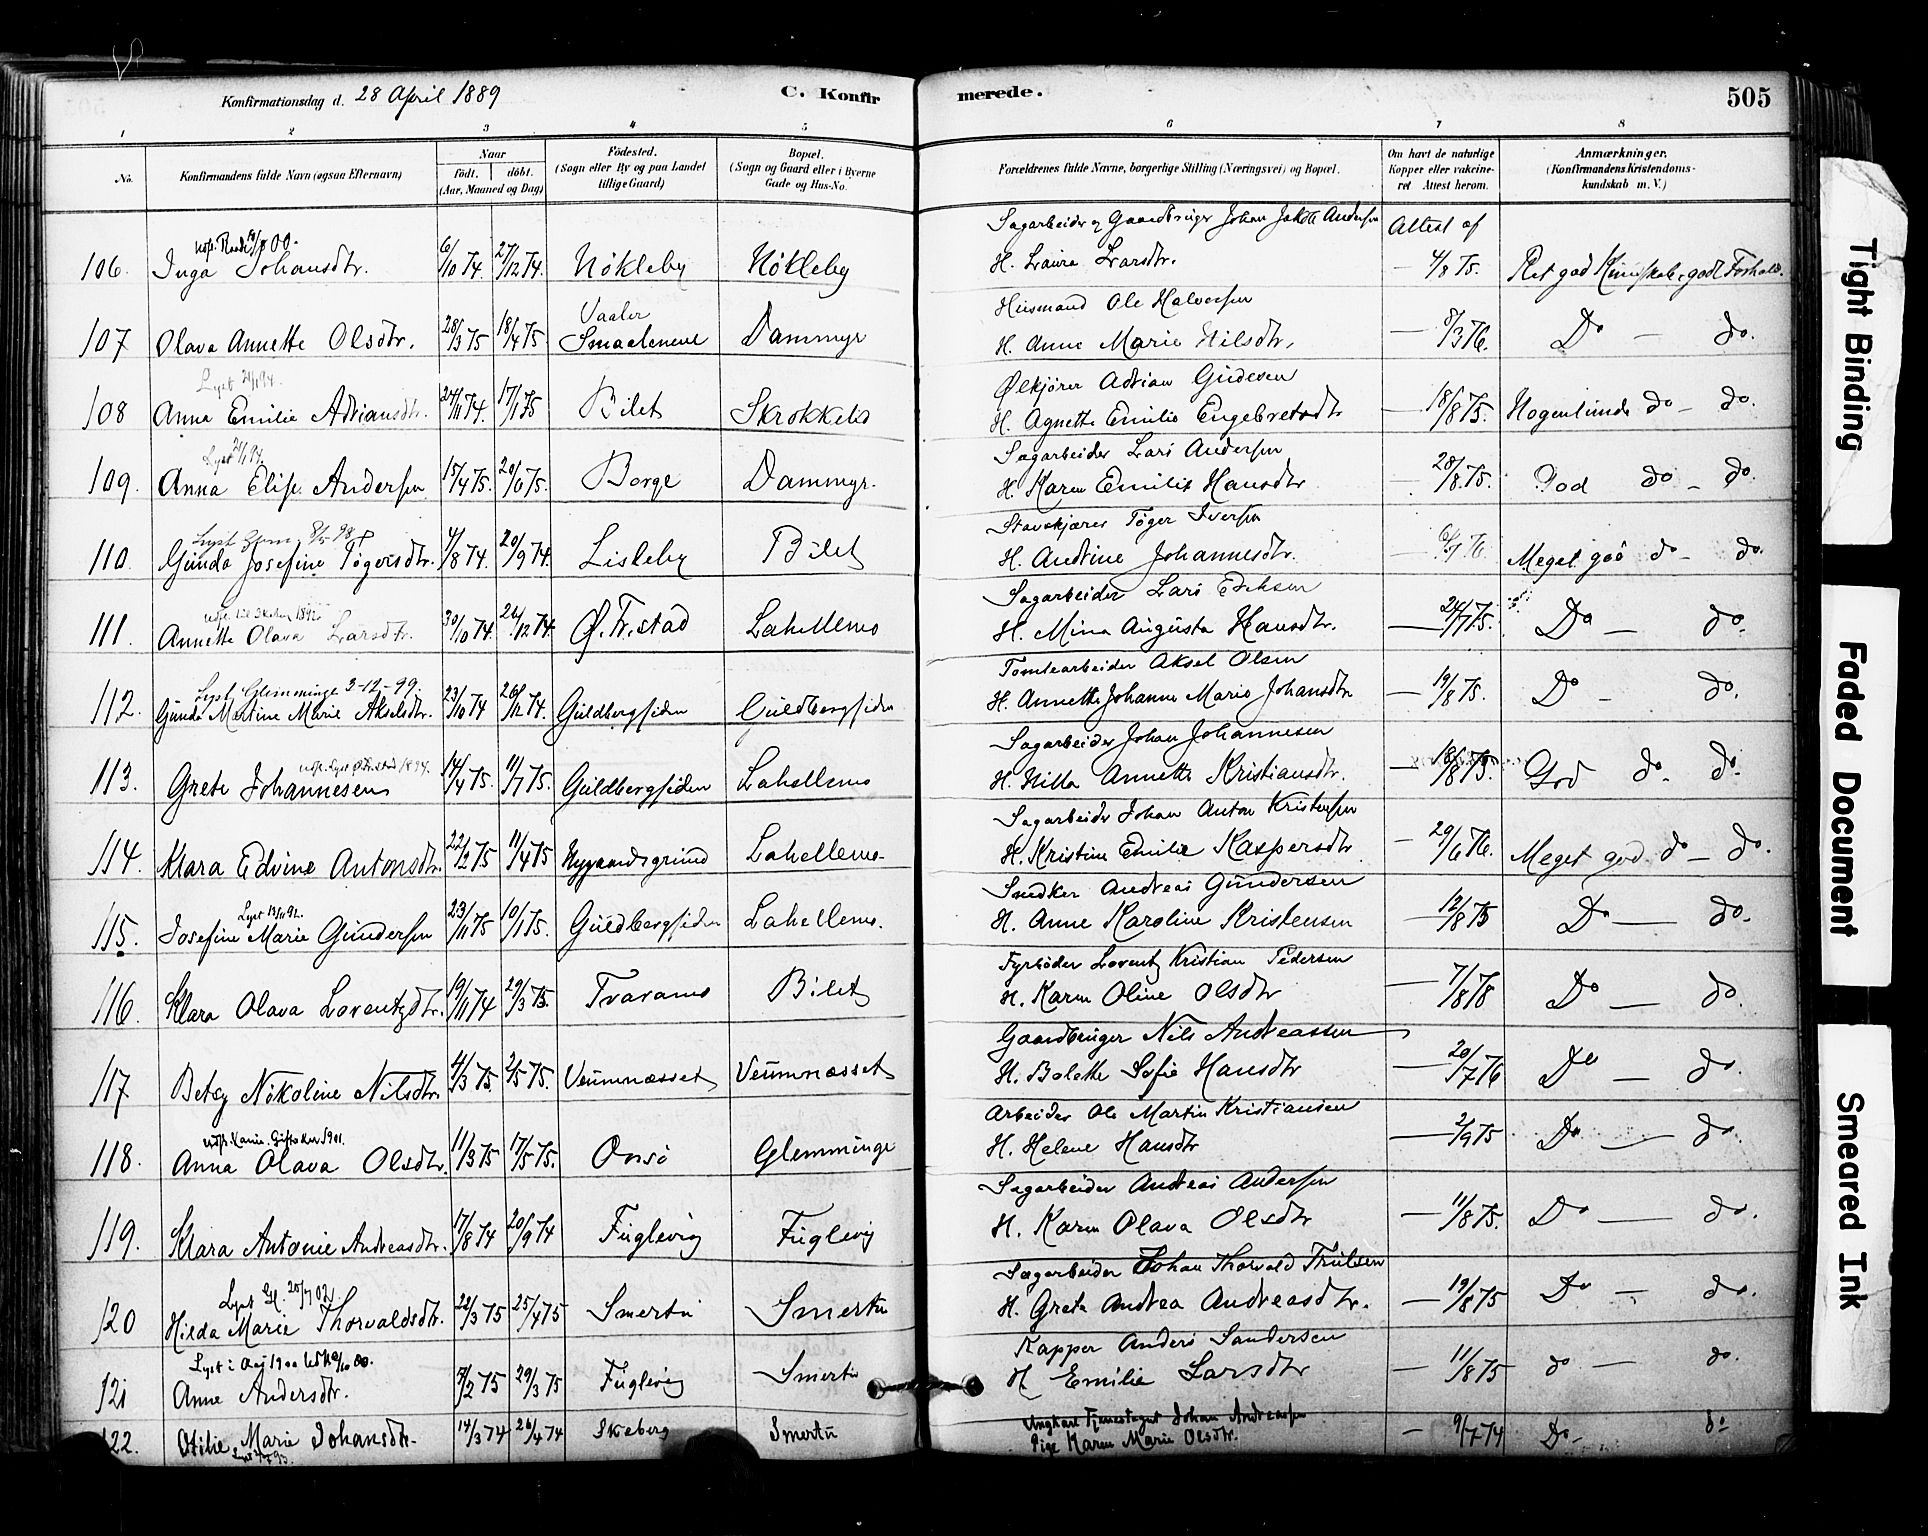 Konfirmationsdag d. 28 April 1889
C. Konfir
merede.
505
1 2 3 4 5 6 7 8
No.
Konfirmandens fulde Navn (ogsaa Efternavn)
Naar
födt. döbt.
(Aar, Maaned og Dag)
Födested.
(Sogn eller By og paa Landet
tillige Gaard)
Bopæl.
(Sogn og Gaard eller i Byerne
Gade og Hus-No.
Forældrenes fulde Navne, borgerlige Stilling (Næringsvei) og Bopæl.
Om havt de naturlige
Kopper eller vakcine-
ret Attest herom.
Anmærkninger.
(Konfirmandens Kristendoms-
kundskab m. V.)
Sagarbeider og Gaardbruger Johan Jakob Andersen Attest af
106. Inga Johansdtr. 6/10 74. 27/12 74. Nökleby Nökleby H. Laura Larsdtr. — 4/8 75. Ret god Kundskab, godt Forhold.
Vaaler Husmand Ole Halvorsen
107 Olava Annette Olsdtr. 28/3 75 18/4 75 Smaalenene Dammyr H. Anne Marie Nilsdtr. — 8/3 76. Do — do.
Lyst 21/1 94. Ølkjører Adrian Gudesen
108 Anna Emilie Adriansdtr. 24/11 74. 17/1 75 Bilet Skrokkelo H. Agnette Emilie Engebretsdtr — 18/8 75. Nogenlunde do — do.
Lyst 21/1 94. Sagarbeider Lars Andersen
109. Anna Elise Andersen 15/4 75. 20/6 75. Borge Dammyr. H. Karen Emilie Hansdtr — 28/8 75. God do — do.
Stavskjærer Töger Iversen
110. Gunda Josefine Tögersdtr. 4/8 74. 20/9 74. Lisleby Bilet H. Andrine Johannesdtr. — 6/7 76 Meget god do — do.
Sagarbeider Lars Eriksen
111. Annette Olava Larsdtr. 30/10 74. 26/12 74. Ø. Fr.stad Lahellemo H. Mina Augusta Hansdtr. — 24/7 75. Do — do.
Lyst Glemminge 3-12-99. Tomtearbeider Aksel Olsen
112. Gunda Martine Marie Akselsdtr. 23/10 74 26/12 74. Guldbergsiden Guldbergsiden H. Annette Johanne Marie Johansdtr. — 19/8 75. Do — do.
Sagarbeider Johan Johannesen
113. Grete Johannesen 14/4 75. 11/7 75. Guldbergsiden Lahellemo H. Hilla Annette Kristiansdtr. — 18/8 75. God do. do.
Sagarbeider Johan Anton Kristensen
114. Klara Edvine Antonsdtr. 22/2 75 11/4 75 Nygaardsgrund Lahellemo. H. Kristine Emilie Kaspersdtr — 29/6 76. Meget god do — do.
Snedker Andreas Gundersen
115. Josefine Marie Gundersen 23/11 75 10/1 75. Guldbergsiden Lahellemo. H. Anne Karoline Kristensen — 12/8 75 Do — do.
Fyrböder Lorentz Kristian Pedersen
116. Klara Olava Lorentzdtr. 19/11 74 29/3 75. Traramo Bilet H. Karen Oline Olsdtr — 7/8 78 Do — do.
Gaardbruger Nils Andreassen
117 Betsy Nikoline Nilsdtr. 4/3 75 2/5 75. Veumnæsset Veumnæsset H. Bolette Sofie Hansdtr — 20/7 76 Do — do.
Arbeider Ole Martin Kristiansen
118. Anna Olava Olsdtr. 11/3 75 17/5 75. Onsö Glemminge H. Helene Hansdtr — 2/9 75 Do — do.
Sagarbeider Andreas Andersen
119. Klara Antonie Andreasdtr. 17/8 74 20/9 74 Fuglevig Fuglevig H. Karen Olava Olsdtr — 11/8 75. Do — do.
Lyst Gl. 20/7 02. Sagarbeider Johan Thorvald Trulsen
120 Hilda Marie Thorvaldsdtr. 22/3 75 25/4 75 Smertu Smertu H. Grete Andrea Andreasdtr. — 19/8 75 Do — do.
Kapper Anders Sandersen
121 Anne Andersdtr. 7/2 75 29/3 75 Fuglevig Smertu H. Emilie Larsdtr — 11/8 75 do — do.
Ungkarl Tjenestegut Johan Andreassen
122. Otilie Marie Johansdtr. 14/3 74 26/4 74 Skeberg Smertu Pige Karen Marie Olsdtr. — 9/7 74 Do — do
Tight Binding
Faded Document
Smeared Ink